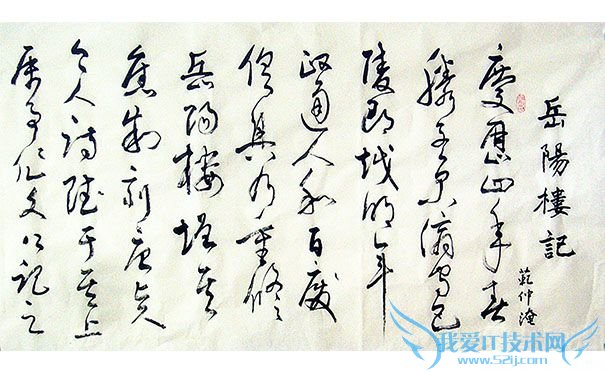 岳陽樓記
範仲淹
慶曆四年春
滕子京謫守巴
陵郡越明年
政通人和百廢
俱興乃重修
岳陽樓增其
舊制刻唐賢
今人詩賦于其上
屬予作文以記之
我爱IT技术网
www.52ij.com